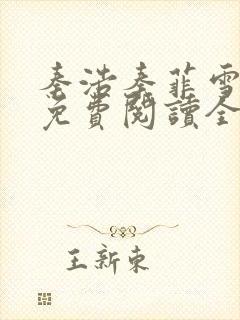 秦浩秦菲雪
免費閱讀全
王新東